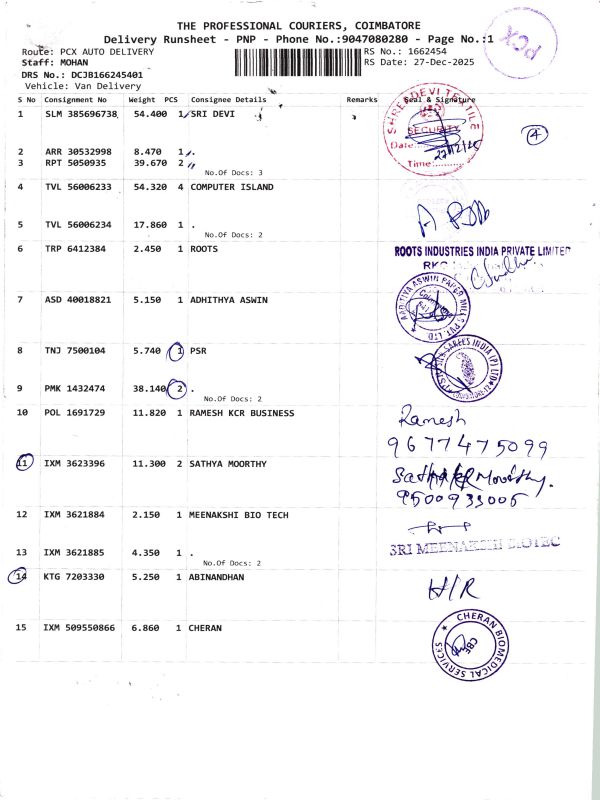 THE PROFESSIONAL COURIERS, COIMBATORE
Delivery Runsheet - PNP - Phone No.:9047080280 - Page No.:1
PCX
Route: PCX AUTO DELIVERY RS No.: 1662454
Staff: MOHAN RS Date: 27-Dec-2025
DRS No.: DCJB166245401
Vehicle: Van Delivery
S No Consignment No Weight PCS Consignee Details Remarks Seal & Signature
1 SLM 385696738 54.400 1 SRI DEVI
SHREE DEVI TEXTILE
SECURITY
Date: 27/12/25
Time:
4
2 ARR 30532998 8.470 1 .
3 RPT 5050935 39.670 2
No.Of Docs: 3
4 TVL 56006233 54.320 4 COMPUTER ISLAND
5 TVL 56006234 17.860 1 .
No.Of Docs: 2
6 TRP 6412384 2.450 1 ROOTS
ROOTS INDUSTRIES INDIA PRIVATE LIMITED
7 ASD 40018821 5.150 1 ADHITHYA ASWIN
AADITIYA ASWIN PAPER MILLS PVT. LTD
8 TNJ 7500104 5.740 1 PSR
SAREES INDIA (P) LTD
9 PMK 1432474 38.140 2 .
No.Of Docs: 2
10 POL 1691729 11.820 1 RAMESH KCR BUSINESS
Ramesh
9677475099
11 IXM 3623396 11.300 2 SATHYA MOORTHY
9500933005
12 IXM 3621884 2.150 1 MEENAKSHI BIO TECH
SRI MEENAKSHI BIOTEC
13 IXM 3621885 4.350 1 .
No.Of Docs: 2
14 KTG 7203330 5.250 1 ABINANDHAN
H/R
15 IXM 509550866 6.860 1 CHERAN
CHERAN BIOMEDICAL SERVICES
CBE